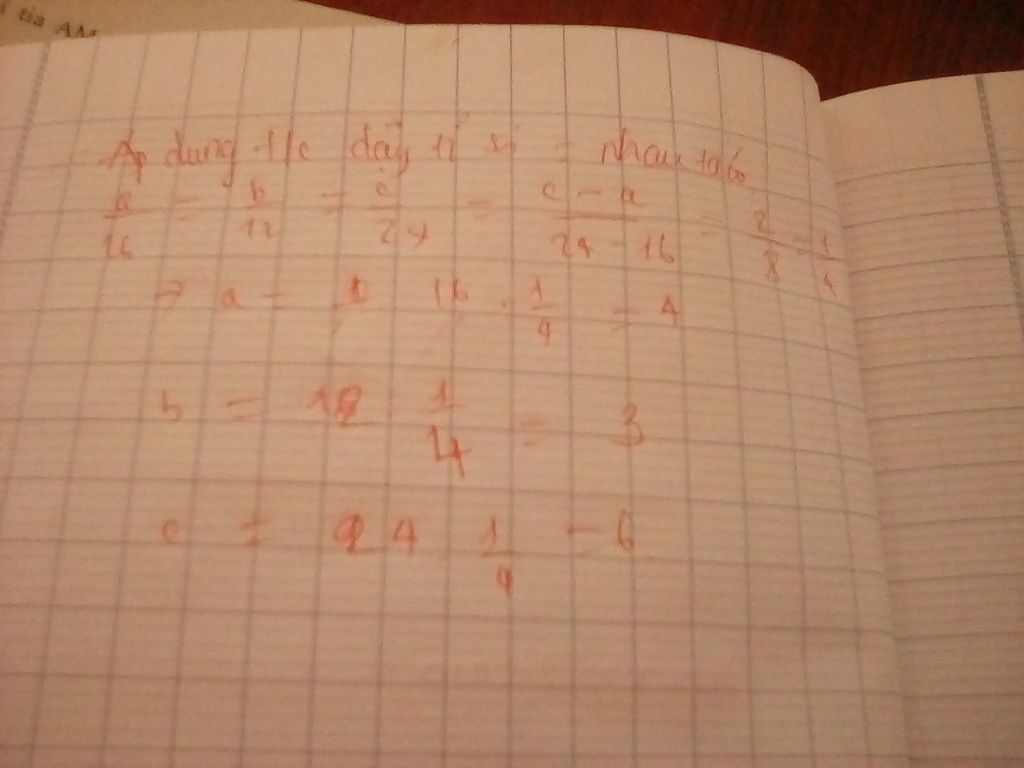 tia AM
Áp dụng t/c dãy tỉ số = nhau ta có
a/16 = b/12 = c/24 = c - a/24 - 16 = 2/8 = 1/4
→ a = 16 . 1/4 = 4
b = 12 1/4 = 3
c = 24 1/4 = 6